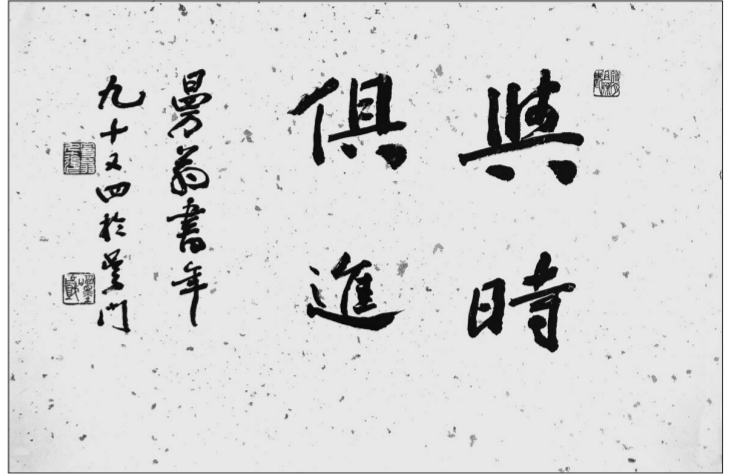 與時
俱進
曼翁書年
九十又四於吳門